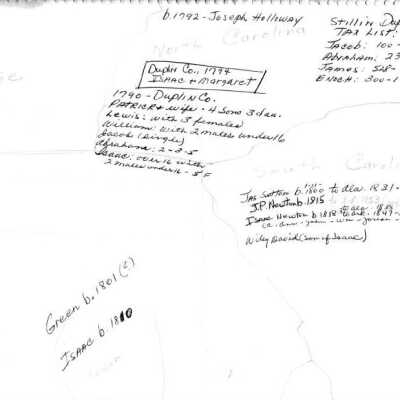 b. 1792 - Joseph Holloway
Still in Dup
Tax List:
Jacob: 100-
Abraham: 23
James: 528-
Enoch: 300-1
North Carolina
Duplin Co., 1794
Isaac + Margaret
1790 - Duplin Co.
Patrick + wife - 4 sons 3 dau.
Lewis: with 3 females
William: with 2 males under 16
Jacob (single)
Abraham: 2-3-5
Isaac: over 16 with
2 males under 16 - 5 F
South Carol
Jas Sutton b. 1800 to dau. 1831-
J.P. Newton b. 1815
Isaac Newton b. 1818 to
Wiley David (son of Isaac)
Green b. 1801 (?)
Isaac b 1810